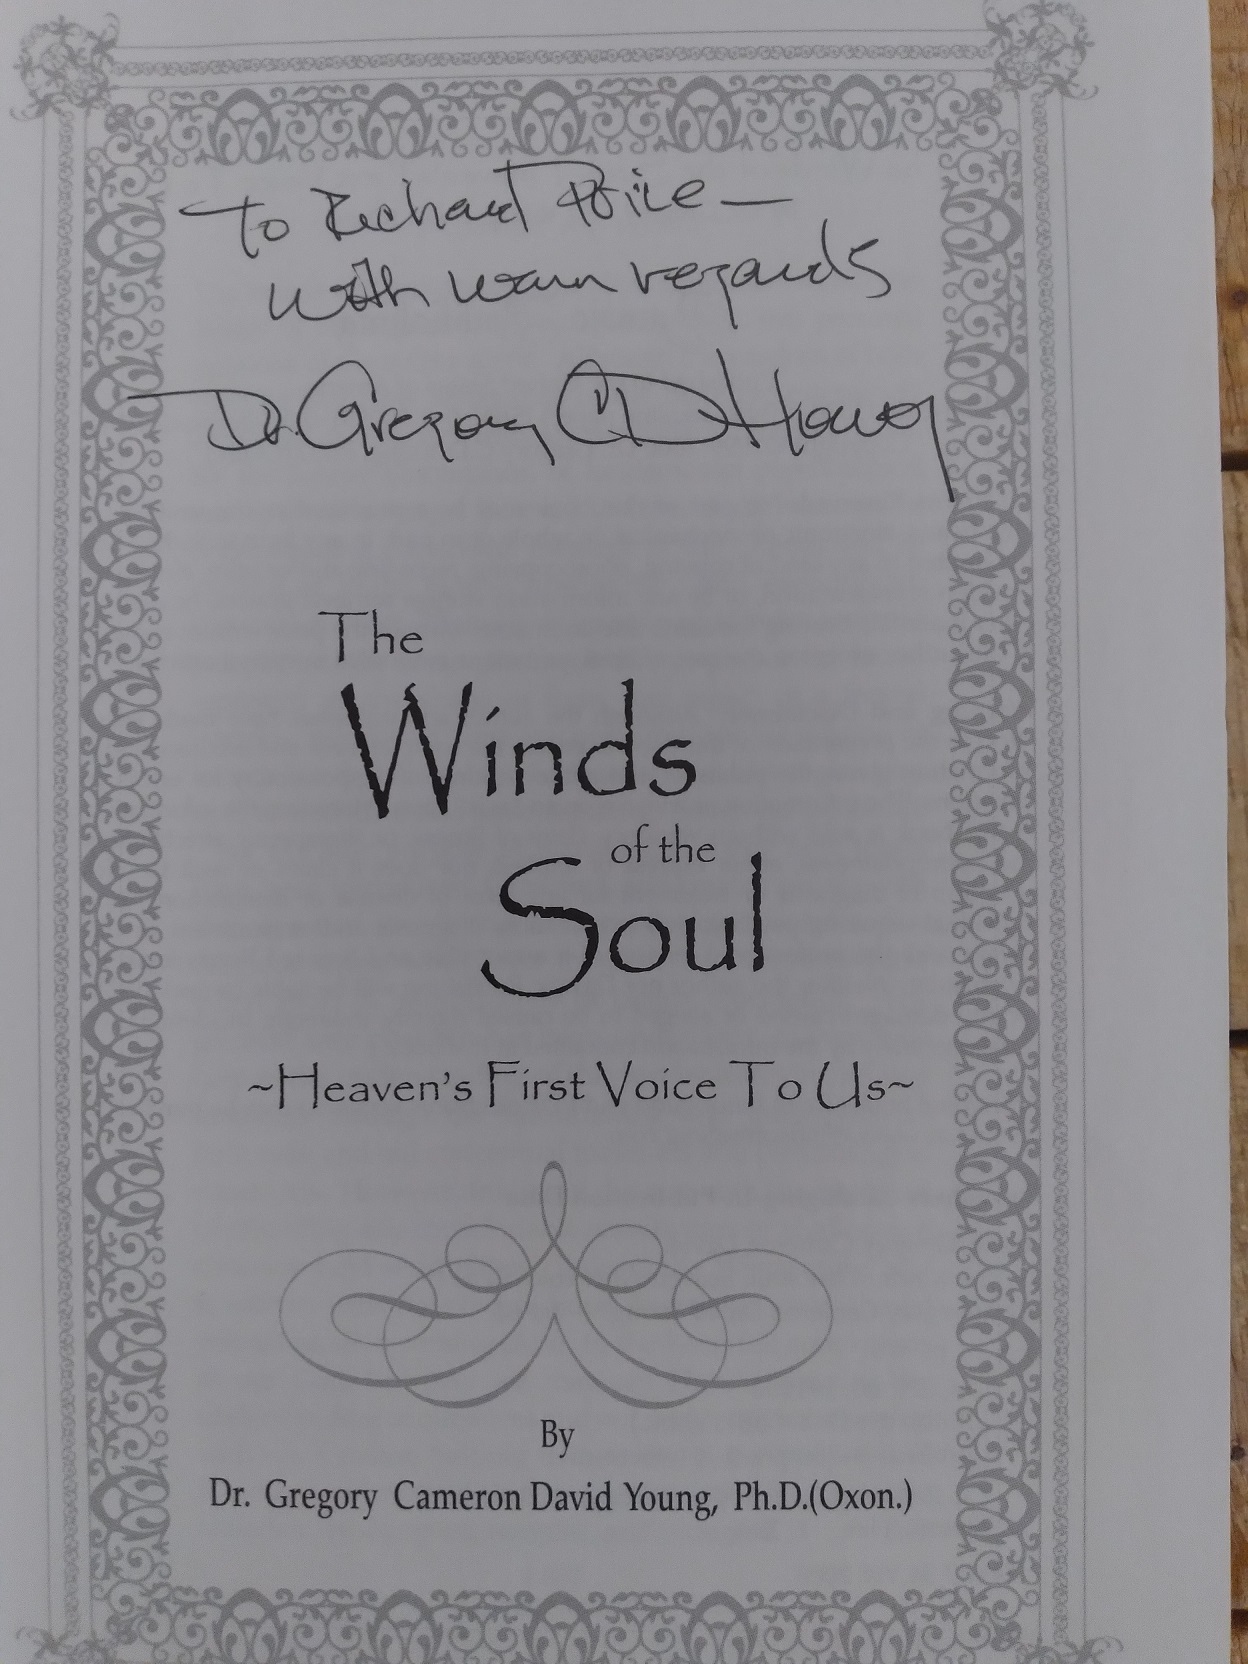 To Richard Price —
with warm regards
Dr. Gregory CD Young
The
Winds
of the
Soul
~Heaven's First Voice To Us~
By
Dr. Gregory Cameron David Young, Ph.D.(Oxon.)